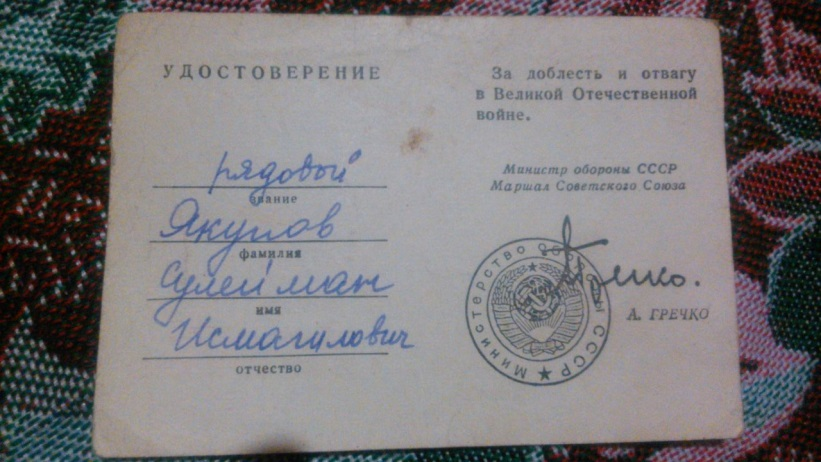 УДОСТОВЕРЕНИЕ
рядовый
звание
Якупов
фамилия
Сулейман
имя
Исмагилович
отчество
За доблесть и отвагу
в Великой Отечественной
войне.
Министр обороны СССР
Маршал Советского Союза
Гречко.
А. ГРЕЧКО
Министерство Обороны СССР